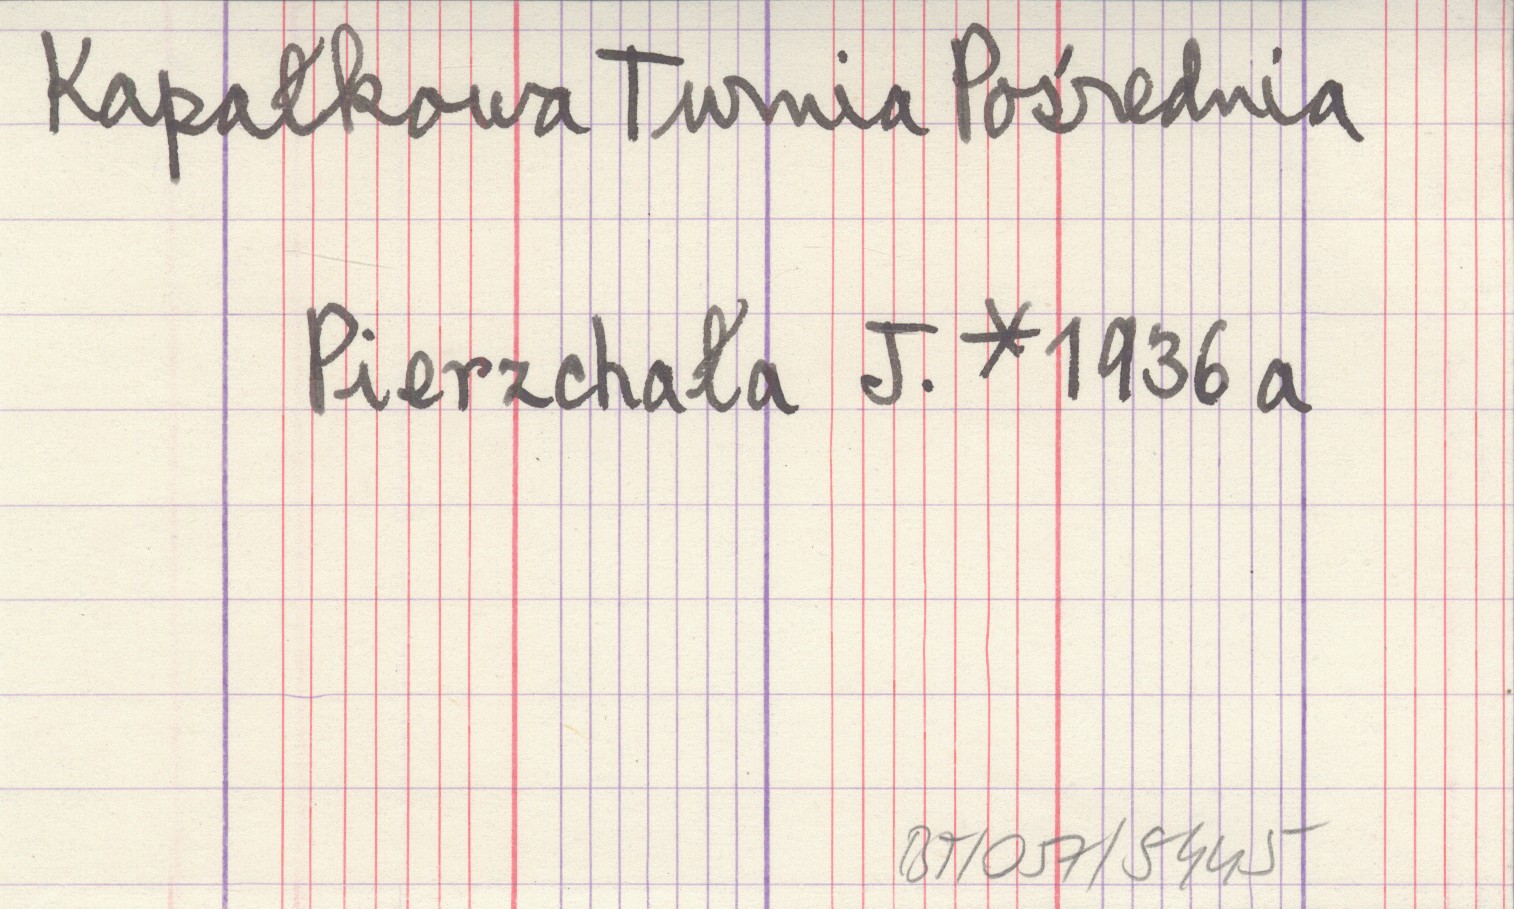 Kapałkowa Turnia Pośrednia
Pierzchała J. *1936 a
BT/057/5445